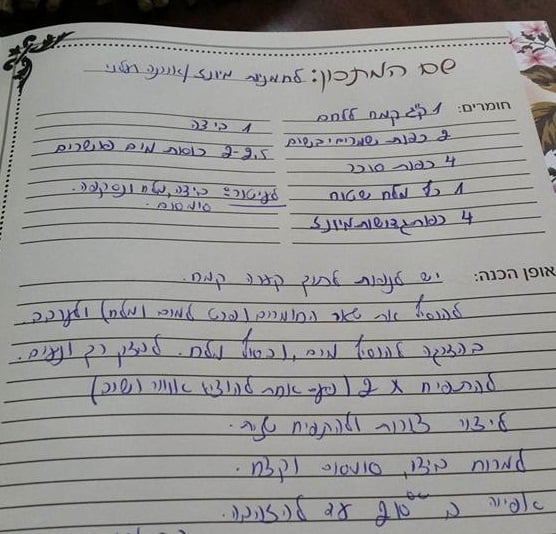 שם המתכון: לחמניות מיונז/אוונה
חומרים: 1 ק"ג קמח ללחם
2 כפות שמרים יבשים
4 כפות סוכר
1 כף מלח שטוח
4 כפות גדושות מיונז
1 ביצה
2-2.5 כוסות מים פושרים
לעיטור: ביצה, מלח
סומסום.
אופן הכנה: יש לנפות לתוך קערה קמח.
להוסיף את שאר החומרים (פרט למים ומלח) ולערבב.
בהדרגה להוסיף מים, ובסוף מלח. לבצק רך ונעים.
להתפיח X 2 (פעם אחת להוציא אוויר ושוב)
ליצור צורות ולהתפיח שנית.
למרוח ביצה, סומסום וקצח.
אפיה ב 210° עד להזהבה.